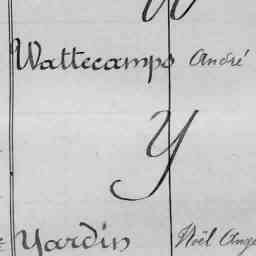 W
Wattecamps André
Y
Yardin Noël Ange